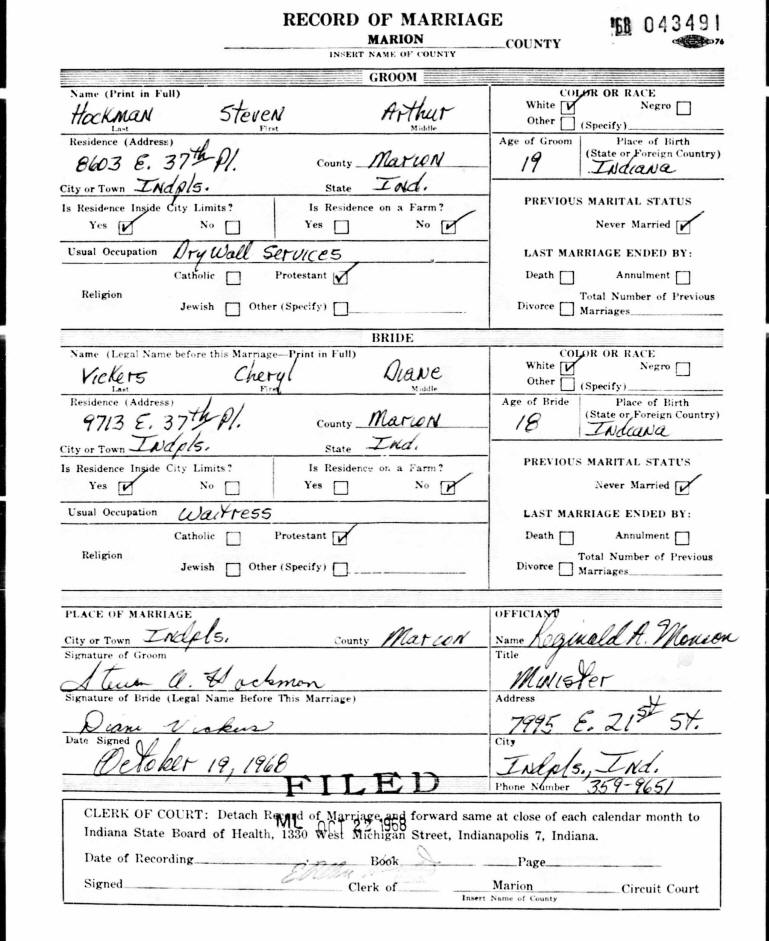 RECORD OF MARRIAGE
'68 043491
MARION COUNTY
76
INSERT NAME OF COUNTY
GROOM
Name (Print in Full)
Hockman Steven Arthur
Last First Middle
COLOR OR RACE
White ☑ Negro ☐
Other ☐ (Specify)
Residence (Address)
8603 E. 37th Pl. County Marion
City or Town Indpls. State Ind.
Age of Groom
19
Place of Birth
(State or Foreign Country)
Indiana
Is Residence Inside City Limits?
Yes ☑ No ☐
Is Residence on a Farm?
Yes ☐ No ☑
PREVIOUS MARITAL STATUS
Never Married ☑
Usual Occupation Dry Wall Services
LAST MARRIAGE ENDED BY:
Religion
Catholic ☐ Protestant ☑
Jewish ☐ Other (Specify) ☐
Death ☐ Annulment ☐
Divorce ☐ Total Number of Previous
Marriages
BRIDE
Name (Legal Name before this Marriage—Print in Full)
Vickers Cheryl Diane
Last First Middle
COLOR OR RACE
White ☑ Negro ☐
Other ☐ (Specify)
Residence (Address)
9713 E. 37th Pl. County Marion
City or Town Indpls. State Ind.
Age of Bride
18
Place of Birth
(State or Foreign Country)
Indiana
Is Residence Inside City Limits?
Yes ☑ No ☐
Is Residence on a Farm?
Yes ☐ No ☑
PREVIOUS MARITAL STATUS
Never Married ☑
Usual Occupation Waitress
LAST MARRIAGE ENDED BY:
Religion
Catholic ☐ Protestant ☑
Jewish ☐ Other (Specify) ☐
Death ☐ Annulment ☐
Divorce ☐ Total Number of Previous
Marriages
PLACE OF MARRIAGE
City or Town Indpls. County Marion
Signature of Groom
Steven A. Hockman
Signature of Bride (Legal Name Before This Marriage)
Diane Vickers
Date Signed
October 19, 1968
OFFICIANT
Name Reginald A. Monson
Title
Minister
Address
7995 E. 21st St.
City
Indpls., Ind.
Phone Number 359-9651
FILED
ML OCT 22 1968
CLERK OF COURT: Detach Record of Marriage and forward same at close of each calendar month to
Indiana State Board of Health, 1330 West Michigan Street, Indianapolis 7, Indiana.
Date of Recording Book Page
Signed Clerk of Marion Circuit Court
Insert Name of County